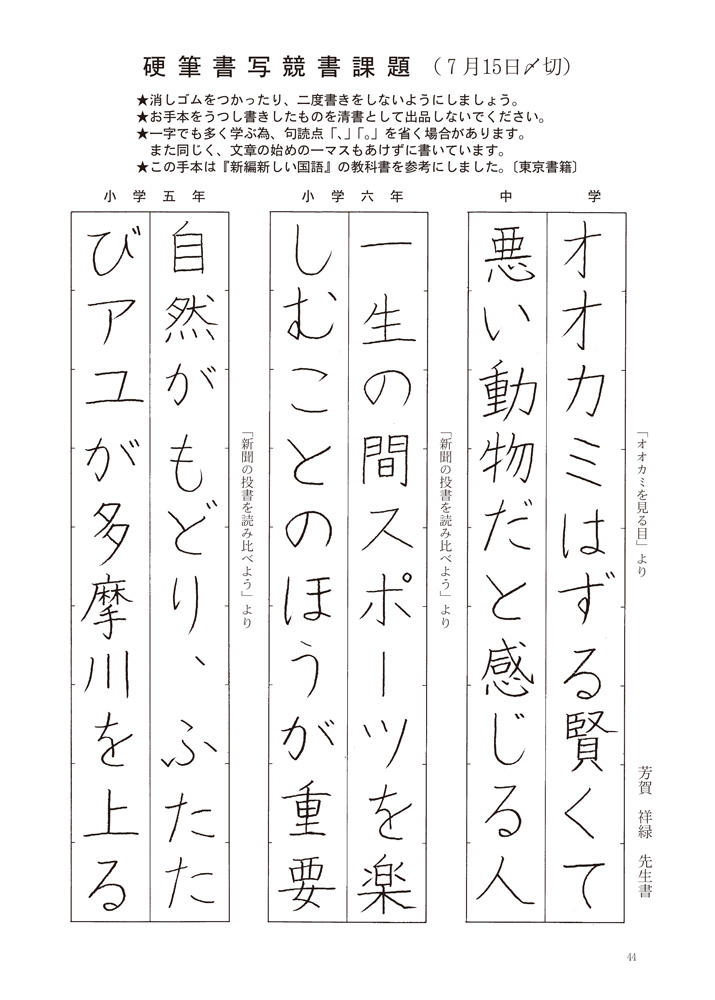 硬筆書写競書課題（７月15日〆切）
★消しゴムをつかったり、二度書きをしないようにしましょう。
★お手本をうつし書きしたものを清書として出品しないでください。
★一字でも多く学ぶ為、句読点「、」「。」を省く場合があります。
また同じく、文章の始めの一マスもあけずに書いています。
★この手本は『新編新しい国語』の教科書を参考にしました。〔東京書籍〕
中学
「オオカミを見る目」より
芳賀 祥緑 先生書
オオカミはずる賢くて
悪い動物だと感じる人
小学六年
「新聞の投書を読み比べよう」より
一生の間スポーツを楽
しむことのほうが重要
小学五年
「新聞の投書を読み比べよう」より
自然がもどり、ふたた
びアユが多摩川を上る
44